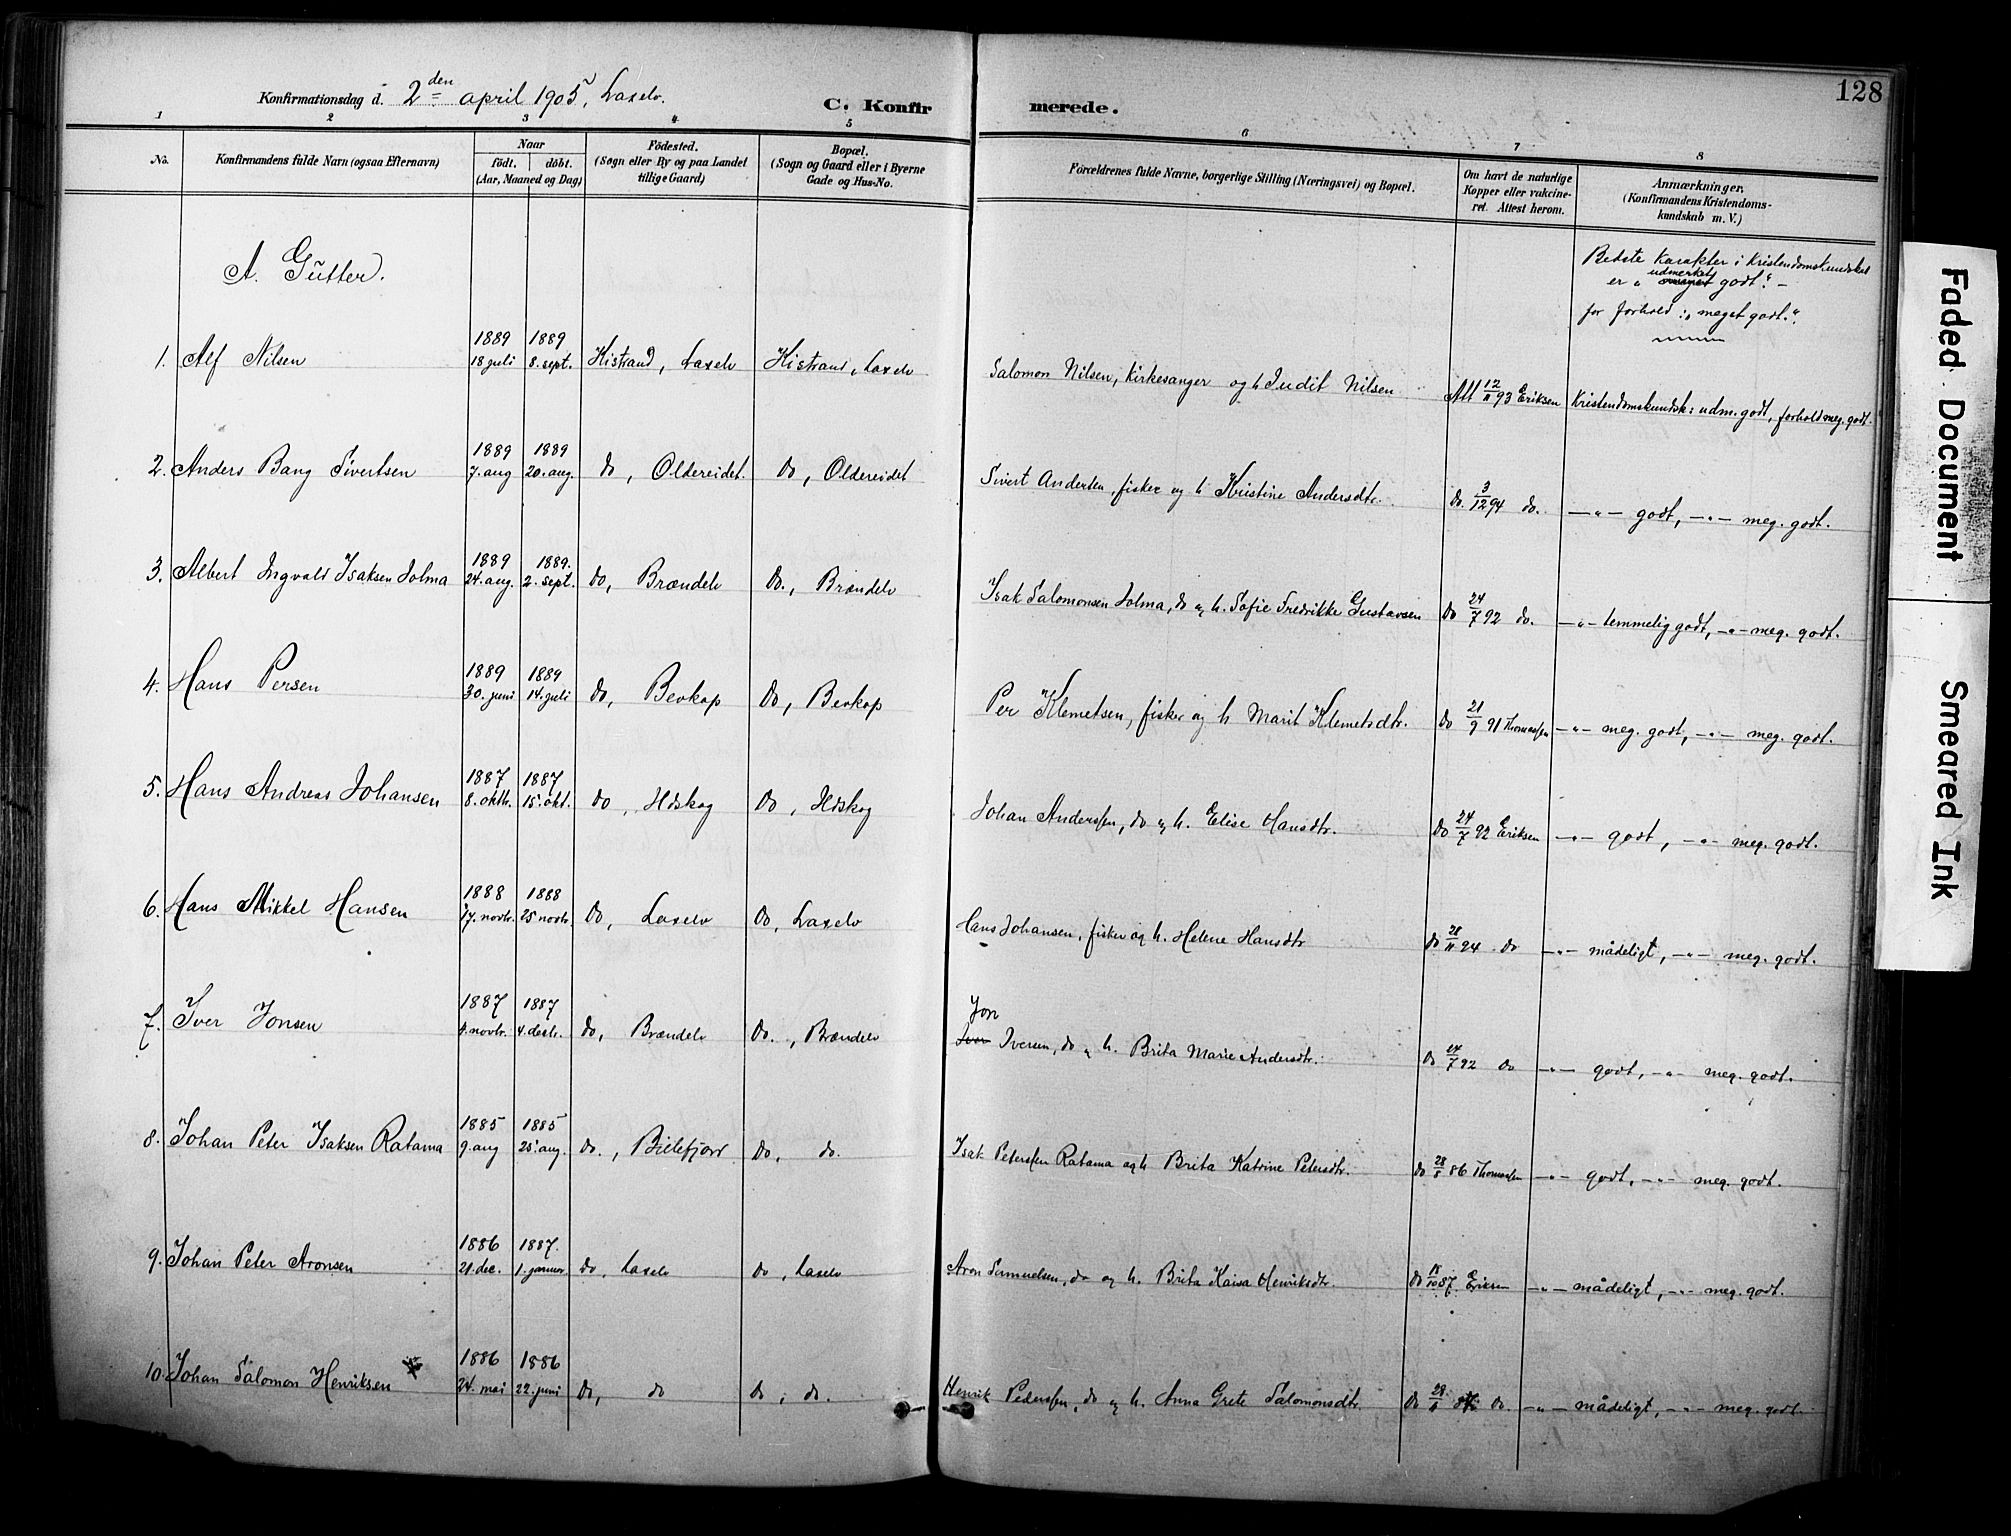 128
Konfirmationsdag d. 2den april 1905, Laxelv.
C. Konfirmerede.
1 2 3 4 5 6 7 8
No.
Konfirmandens fulde Navn (ogsaa Efternavn)
Naar
födt. döbt.
(Aar, Maaned og Dag)
Födested.
(Sogn eller By og paa Landet
tillige Gaard)
Bopæl.
(Sogn og Gaard eller i Byerne
Gade og Hus-No.
Forældrenes fulde Navne, borgerlige Stilling (Næringsvei) og Bopæl.
Om havt de naturlige
Kopper eller vakcine-
ret. Attest herom.
Anmærkninger.
(Konfirmandens Kristendoms-
kundskab m. V.)
A. Gutter.
Bedste karakter i kristendomskundskab
er „udmerket godt“. –
for forhold: „meget godt.“
1. Alf Nilsen 1889 18 juli 1889 8. sept. Kistrand, Laxelv Kistrand, Laxelv Salomon Nilsen, kirkesanger og h Judit Nilsen Att 12/11 93 Eriksen Kristendomskundsk: udm. godt, forhold meg. godt.
2. Anders Bang Sivertsen 1889 7. aug 1889 20. aug. do, Oldereidet. do, Oldereidet Sivert Andersen, fisker og h Kristine Andersdtr. do. 3/12 94 do. –„– godt, –„– meg. godt.
3. Albert Ingvald Isaksen Jolma 1889 24. aug. 1889. 2. sept. do, Brændelv do., Brændelv Isak Salomonsen Jolma, do og h. Sofie Fredrikke Gustavsen do 24/7 92 do. –„– temmelig godt, –„– meg. godt.
4. Hans Persen 1889 30. juni 1889 14. juli do, Bevkop do, Bevkop Per Klemetsen, fisker og h Marit Klemetsdtr. do 21/9 91 Thomassen –„– meg. godt, –„– meg. godt.
5. Hans Andreas Johansen 1887 8. oktb. 1887 15. okt. do, Hdskog do, Hdskog Johan Anderssen, do og h. Elise Hansdtr. do 24/7 92 Eriksen –„– godt, –„– meg. godt.
6. Hans Mikkel Hansen 1888 17. novbr. 1888 25 novbr. do, Laxelv do, Laxelv Hans Johansen, fisker og h. Helene Hansdtr do 28/11 94 do –„– mådeligt, –„– meg. godt.
7. Iver Jonsen 1887 4. novbr. 1887 4. decbr. do, Brændelv do., Brændelv Jon Iversen, do og h. Brita Marie Andersdtr. do 24/7 92 do –„– godt, –„– meg. godt.
8. Johan Peter Isaksen Ratama 1885 9. aug 1885 25. aug. do., Billefjord do, do. Isak Peterssen Ratama og h Brita Katrine Petersdtr. do 28/8 86 Thomassen –„– godt, –„– meg. godt.
9. Johan Peter Aronsen 1886 21. dec. 1887. 1. januar. do, Laxelv do, Laxelv Aron Samuelsen, do og h. Brita Kaisa Henriksdtr. do 18/10 87. Eriksen –„– mådeligt, –„– meg. godt.
10. Johan Salomon Henriksen 1886 24. mai 1886 22. juni do, do do, do. Henrik Pederssen, do og h. Anna Grete Salomonsdtr. do do. –„– mådeligt, –„– meg. godt.
Faded Document
Smeared Ink